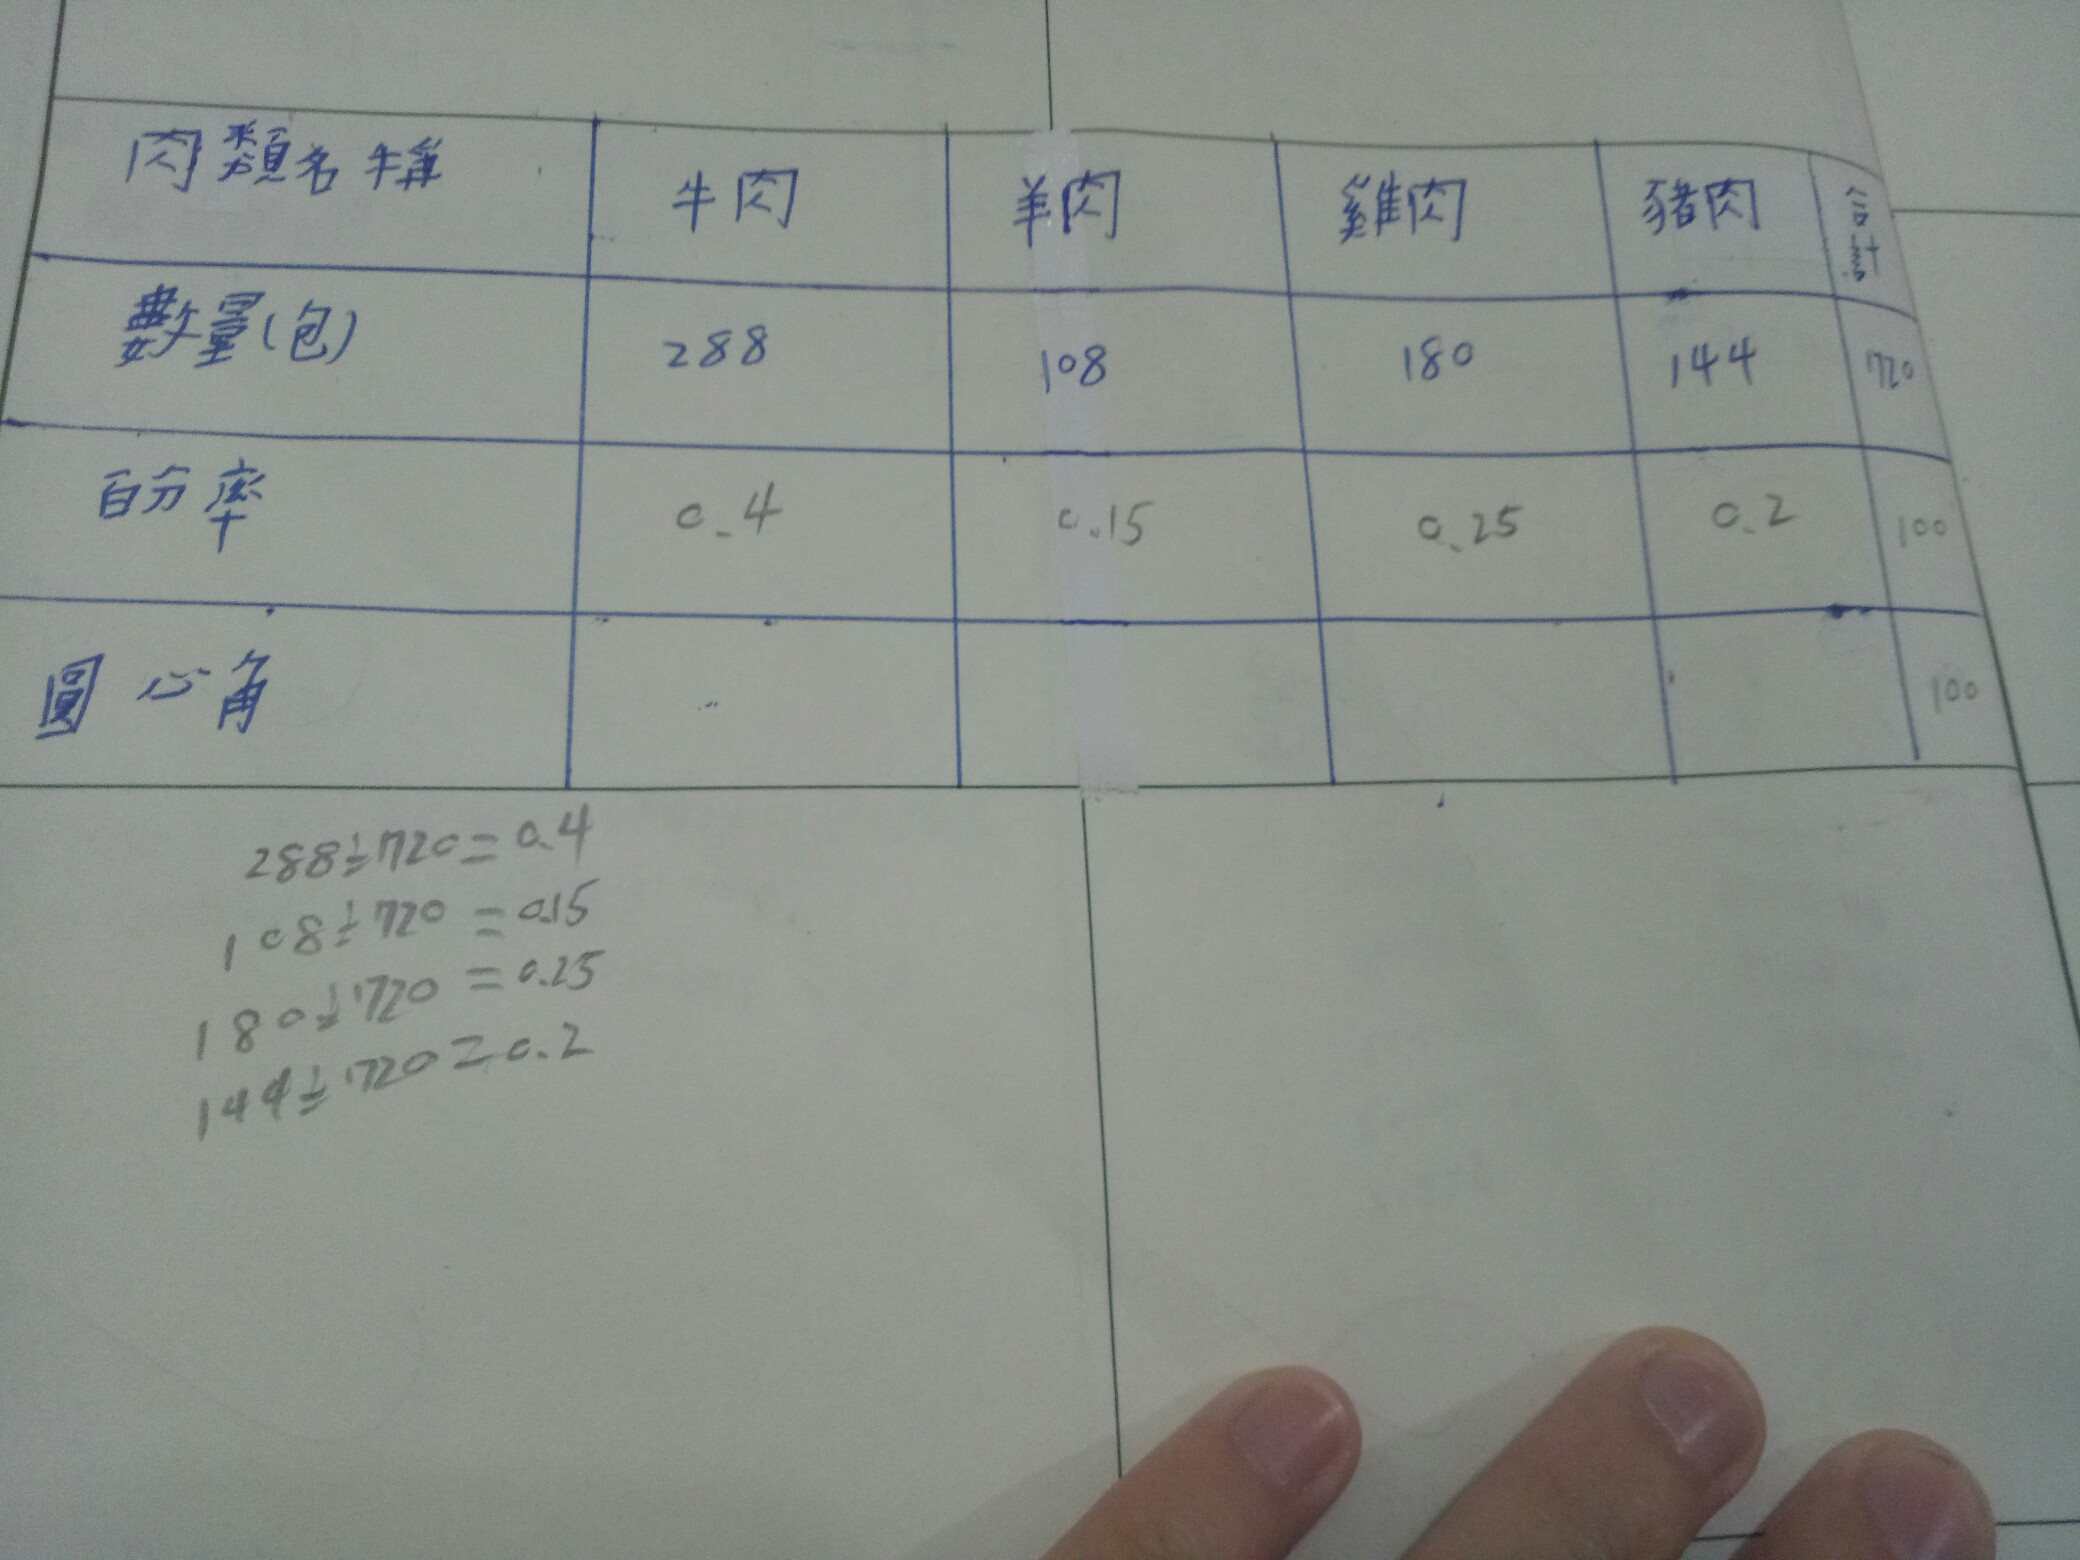 肉類名稱 牛肉 羊肉 雞肉 豬肉 合計
數量(包) 288 108 180 144 720
百分率 0.4 0.15 0.25 0.2 100
圓心角 100
288÷720=0.4
108÷720=0.15
180÷720=0.25
144÷720=0.2